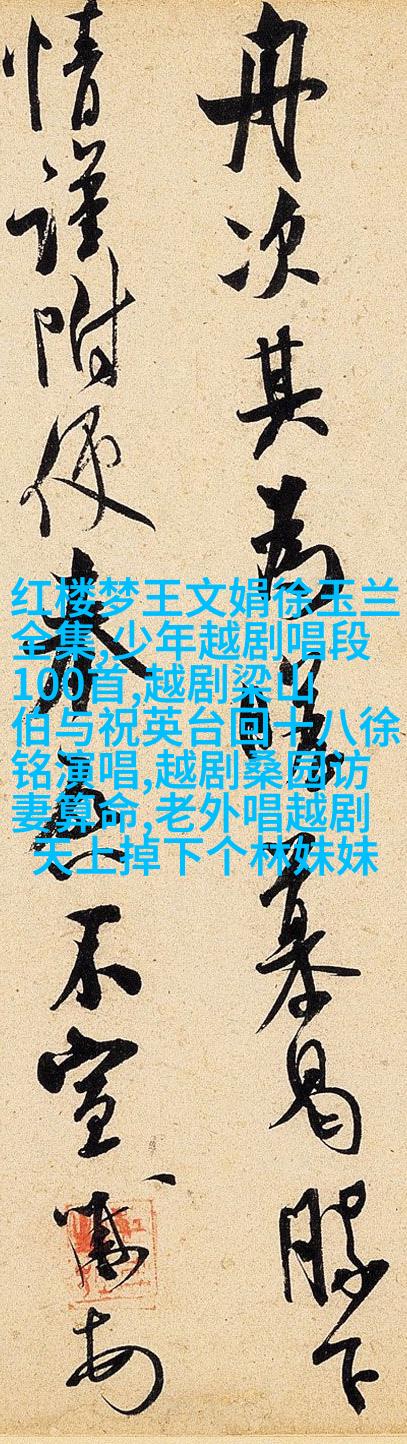 舟次其為慕曷勝下
情謹附便奉不宣
红楼梦王文娟徐玉兰
全集,少年越剧唱段
100首,越剧梁山
伯与祝英台回十八徐
铭演唱,越剧桑园访
妻算命,老外唱越剧
天上掉下个林妹妹